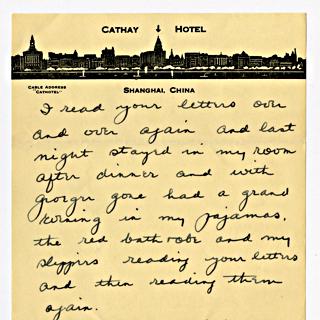 CATHAY HOTEL
CABLE ADDRESS
"CATHOTEL"
SHANGHAI, CHINA
I read your letters over
and over again and last
night stayed in my room
after dinner and with
georgie gone had a grand
evening in my pajamas,
the red bath robe and my
slippers reading your letters
and then reading them
again.